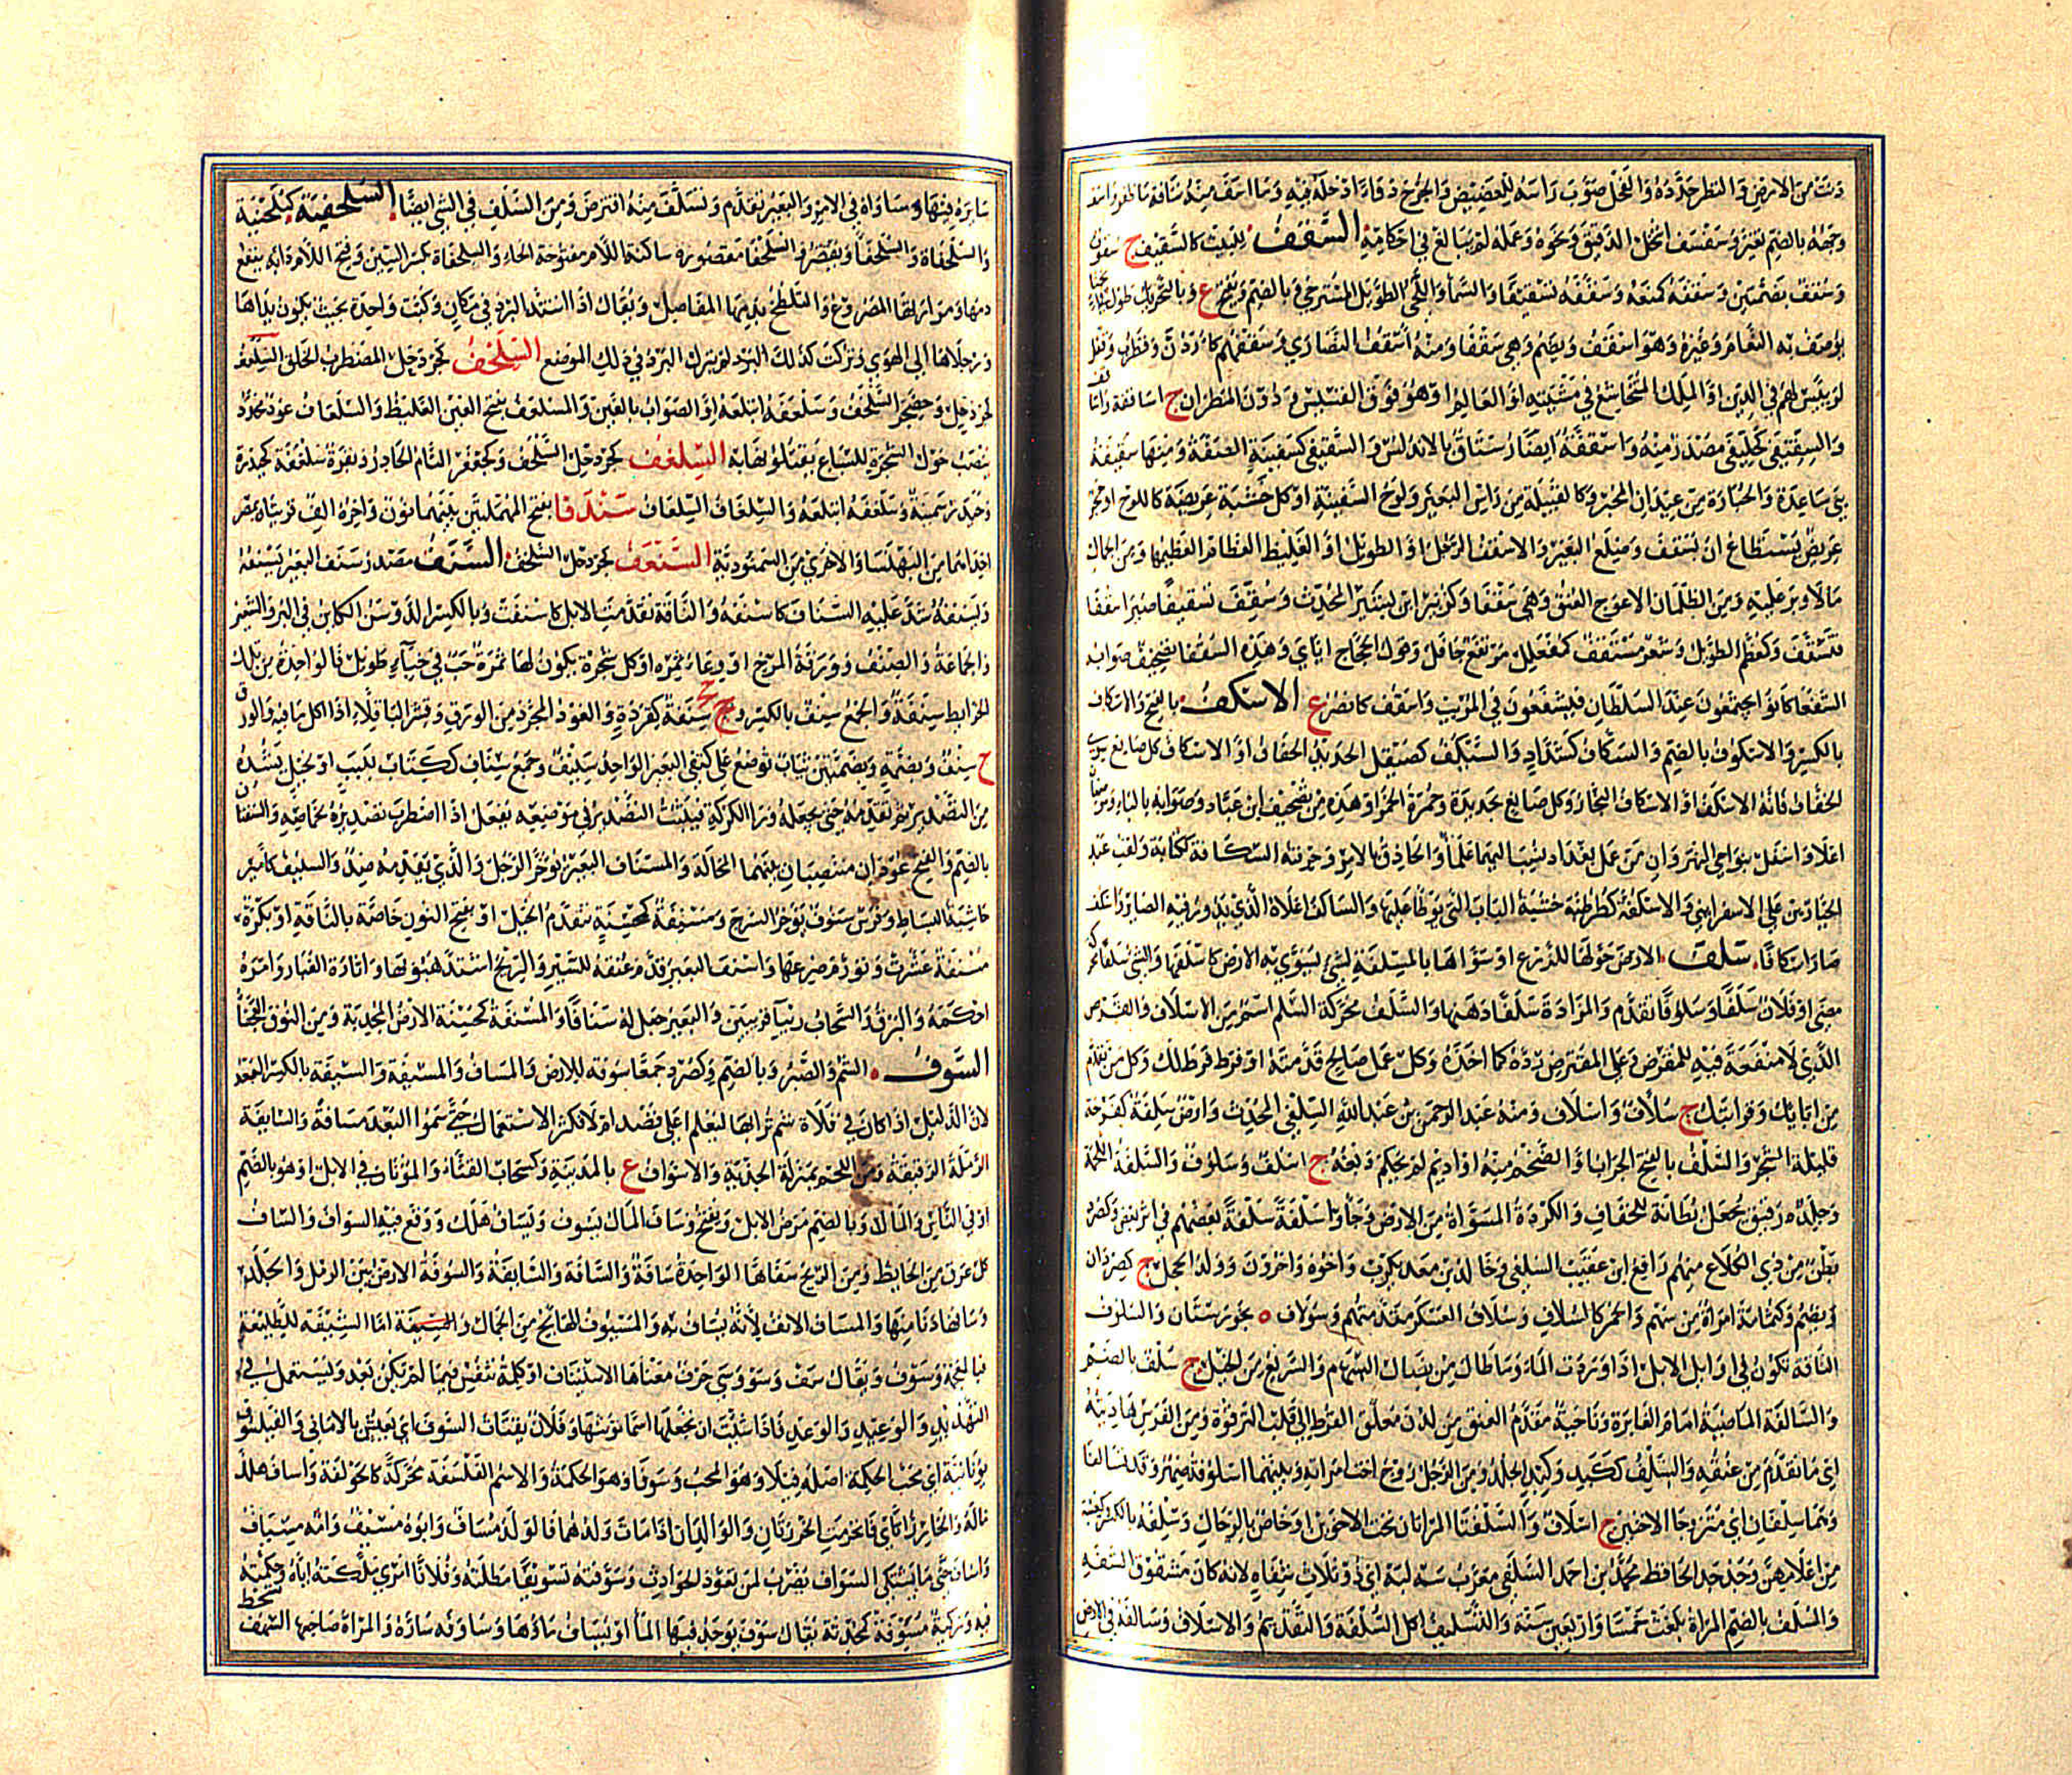 دنت من الارض والنظر حدده والفحل صوب راسه للعضيض والجرح دواءً ادخله فيه وما اسف منه
وجهه بالضم تغير وسفسف انتخل الدقيق ونحوه وعمله لم يبالغ في احكامه السقف للبيت كالسقيف ج سقوف
وسقف بضمتين وسقفه كمنعه وسقفه تسقيفا والسماء واللحي الطويل المسترخي وبالضم ويفتح ع وبالتحريك طول في انحناء
يوصف به النعام وغيره وهو اسقف ويضم وهي سقفا ومنه اسقف النصاري وسقفهم كاردن وقطرب وقفل
لرييس لهم في الدين او الملك المتخاشع في مشيته او العالم او هو فوق القسيس ودون المطران ج اساقفة واساقف
والسقيفي كخليفي مصدر منه واسقفة ايضا رستاق بالاندلس والسقيفة كسفينة الصفة ومنها سقيفة
بني ساعدة والجبارة من عيدان المجبر وكالقبيلة من راس البعير ولوح السفينة او كل خشبة عريضة كاللوح او حجر
عريض يستطاع ان يسقف وضلع البعير والاسقف الرجل الطويل او الغليظ العظام العظيمها ومن الجمال
مالا وبر عليه ومن الظلمان الاعوج العنق وهي سقفا وكزبير ابن بشير المحدث وسقف تسقيفا صير اسقفا
فتسقف وكمعظم الطويل وشعر مستقف كمقعنلل مرتفع جافل وقول الحجاج اياي وهذه السقفا تصحيف صوابه
الشفعا كانوا يجتمعون عند السلطان فيشفعون في المريب واسقف كانصر ع الاسكف بالفتح والاسكاف
بالكسر والاسكوف بالضم والسكاف كشداد والسيكف كصيقل الحديد الخفاف او الاسكاف كل صانع سوى
الخفاف فانه الاسكف او الاسكاف النجار وكل صانع بحديدة وحمرة الخمر او هذه من تصحيف ابن عباد وصوابه بالباء وموضعان
اعلا واسفل بنواحي النهروان من عمل بغداد ينسب اليهما علماء والحاذق بالامر وحرفته السكافة ككتابة ولقب عبد
الجبار بن علي الاسفرايني والاسكفة كطرطبة خشبة الباب التي يوطا عليها والساكف اعلاه الذي يدور فيه الصاير واسكف
صار اسكافا سلف الارض حولها للزرع او سواها بالمسلفة لشي تسوي به الارض كاسلفها والشي سلفا محركة
مضي او فلان سلفا وسلوفا تقدم والمزادة سلفا دهنها والسلف محركة السلم اسم من الاسلاف والقرض
الذي لا منفعة فيه للمقرض وعلي المقترض رده كما اخذه وكل عمل صالح قدمته او فرط فرط لك وكل من تقدم
من ابايك وقرابتك ج سلاف واسلاف ومنه عبد الرحمن بن عبد الله السلفي المحدث وارض سلفة كفرحة
قليلة الشجر والسلف بالفتح الجراب او الضخم منه او اديم لم يحكم دبغه ج اسلف وسلوف والسلفة اللمجة
وجلده رقيق يجعل بطانة للخفاف والكردة المسواة من الارض وجاؤا سلفة سلفة بعضهم في اثر بعض وكصرد
بطن من ذي الكلاع منهم رافع ابن عقيب السلفي وخالد بن معد يكرب واخوه واخرون وولد الحجل ج كصردان
ويضم وكثمامة امراة من سهم والخمر كالسلاف وسلاف العسكر مقدمتهم وسولاف ه بخورستان والسلوف
الناقة تكون في اوايل الابل اذا اوردت الماء وما طال من نصال السهام والسريع من الخيل ج سلف بالضم
والسالفة الماضية امام الغابرة وناحية مقدم العنق من لدن معلق القرط الي قلت الترقوة ومن الفرس هاديته
اي ما تقدم من عنقه والسلف ككبد وكبد الجلد ومن الرجل زوج اخت امراته وبينهما اسلوفة صهر وقد تسالفا
وهما سلفان اي متزوجا الاختين ج اسلاف والسلفتا المراتان تحت الاخوين او خاص بالرجال وسلفة بالكسر كعنبة
من اعلامهن وجد جد الحافظ محمد بن احمد السلفي معرب سه لبه اي ذو ثلاث شفاه لانه كان مشقوق الشفه
والسلف بالضم المراة بلغت خمسا واربعين سنة والتسليف اكل السلفة والتقديم والاسلاف وسالفه في الارض
سايره فيها وساواه في الامر والبعير تقدم وتسلف منه اقترض ومن السلف في الشي ايضا السلحفية كبلهنية
والسلحفاة والسلحفا ويقصر والسلحفا مقصورة ساكنة اللام مفتوحة الحاء والسلحفاة بكسر السين وفتح اللام دابه ينفع
دمها ومرارتها المصروع والتلطخ بدمها المفاصل ويقال اذا اشتد البرد في مكان وكبت واحدة بحيث تكون يداها
ورجلاها الي الهوي وتركت كذلك لم ينزل البرد في ذلك الموضع السلخف كجردحل المضطرب الخلق السلعف
كجردحل وحضجر السلخف وسلعفه ابتلعه او الصواب بالغين والمسلعف بفتح العين الغليظ والسلعاف عود يحدد
ينصب حول الشجرة للسباع يقتلونها به السلغف كجردحل السلخف وكجعفر التام الحادر وبقرة سلغفة كحيدرة
وخيدر سمينة وسلغفه ابتلعه والسلغاف السلعاف سندفا بفتح المهملتين بينهما نون واخره الف قريتان بمصر
احداهما من البهنسا والاخري من السمنودية السنعف كجردحل السلخف السنف مصدر سنف البعير يسنفه
ويسنفه شد عليه السناف كاسنفه والناقة تقدمت الابل كاسنفت وبالكسر الدوسر الكاين في البر والشعير
والجماعة والصنف وورقة المرخ او وعاء ثمره او كل شجرة يكون لها ثمرة حب في خباء طويل فالواحدة من تلك
الخرايط سنفة والجمع سنف بالكسر وج سنفة كقردة والعود المجرد من الورق وقشر الباقلاء اذا اكل ما فيه والورق
ج سنف وبضمة وبضمتين ثياب توضع علي كتفي البعير الواحد سنيف وجمع سناف ككتاب للبب او لحبل تشده
من التصدير ثم تقدمه حتي تجعله ورا الكركرة فيثبت التصدير في موضعه يفعل اذا اضطرب تصديره لخماصه والسنفتان
بالضم والفتح عودان منتصبان بينهما المحالة والمسناف البعير يؤخر الرحل والذي يقدمه ضد والسنيف كامير
حاشية البساط وفرس سنوف يؤخر السرج ومسنفة كمحسنة تتقدم الخيل او بفتح النون خاصة بالناقة او بكرة
مسنفة عشرت وتورم ضرعها واسنف البعير قدم عنقه للسير والريح اشتد هبوبها واثارة الغبار وامره
احكمه والبرق والسحاب رييا قريبين والبعير جعل له سنافا والمسنفة كمحسنة الارض المجدبة ومن النوق العجفا
السوف الشم والصبر وبالضم وكصرد جمعا سوفة للارض والمساف والمسافة والسيفة بالكسر البعد
لان الدليل اذا كان في فلاة شم ترابها ليعلم اعلي قصد ام لا فكثر الاستعمال حتي سموا البعد مسافة والسايفة
الرملة الرقيقة ومن اللحم بمنزلة الحذية والاسواف ع بالمدينة وكسحاب القثاء والموتان في الابل او هو بالضم
او في الناس والمال او بالضم مرض الابل ويفتح وساف المال يسوف ويساف هلك ووقع فيه السواف والساف
كل عرق من الحايط ومن الريح سفاها الواحدة سافة والسافة والسايفة والسوفة الارض بين الرمل والجلد
وسافها دنا منها والمساف الانف لانه يساف به والمسوف الهايج من الجمال والسيفة اما السيفة للطليعة
فبالمعجمة وسوف ويقال سف وسو وسي حرف معناها الاستيناف او كلمة تنفيس فيما لم يكن بعد وتستعمل في
التهديد والوعيد والوعد فاذا شئت ان تجعلها اسما نونتها وفلان يقتات السوف اي يعيش بالاماني والفيلسوف
يونانية اي محب الحكمة اصله فيلا وهو المحب وسوفا وهو الحكمة والاسم الفلسفة مركبة كالحوقلة واساف هلك
ماله والخارز اثاي فانخرمت الخرزتان والوالدان اذا مات ولدهما فالولد مساف وابوه مسيف وامه مسياف
واساف حتي ما يشتكي السواف يضرب لمن تعود الحوادث وسوفته تسويفا مطلته وفلانا امري ملكته اياه وحكمته
فيه وركية مسوفة كمحدثة يقال سوف يوجد فيها الماء او يساف ماؤها وساوفه ساره والمراة ضاجعها السهف
تشحط